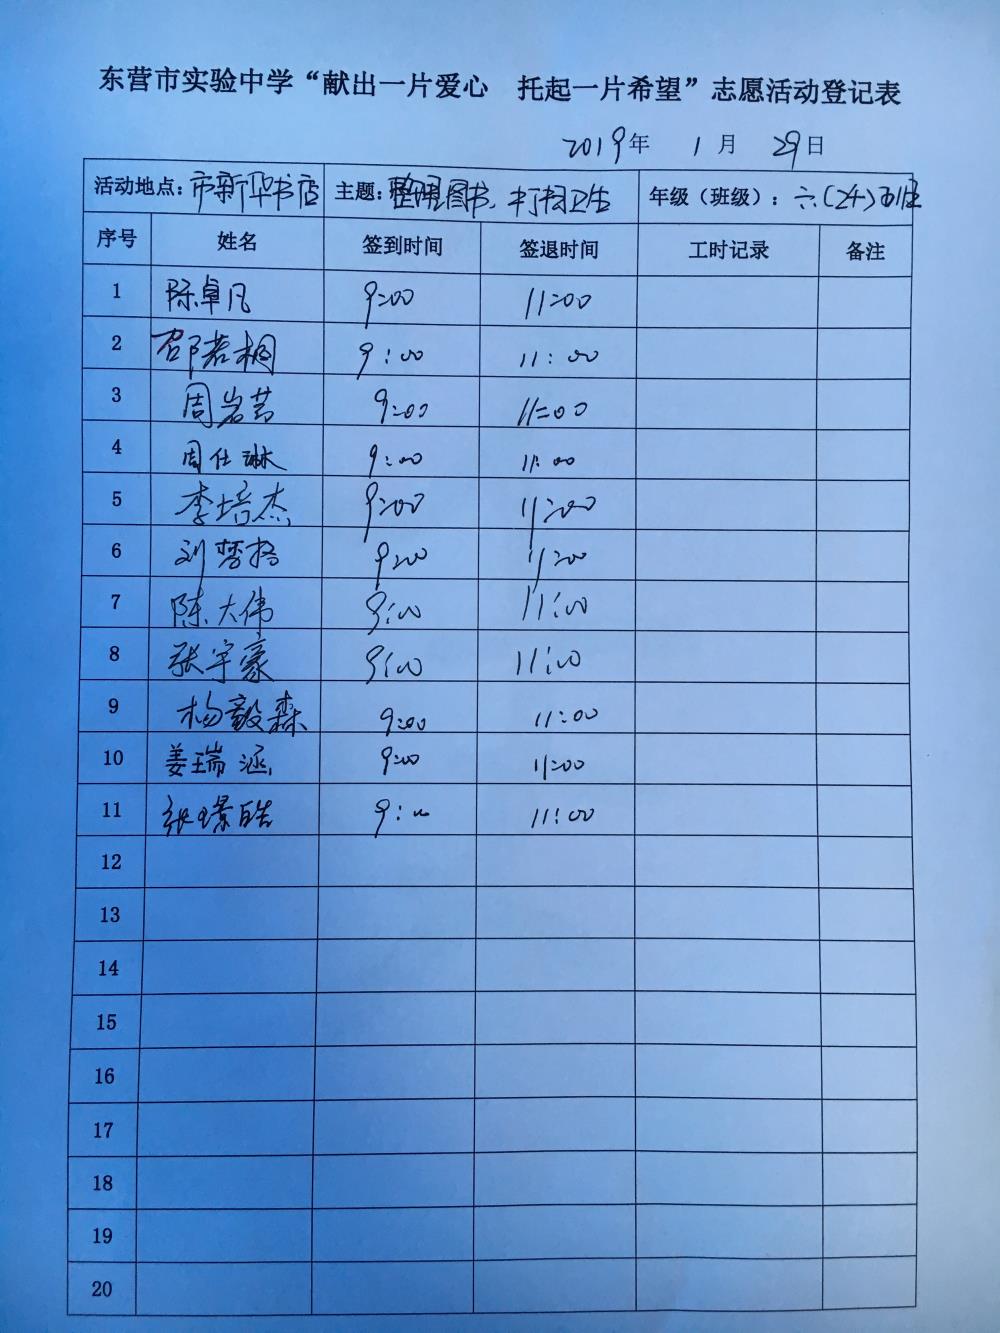 东营市实验中学“献出一片爱心 托起一片希望”志愿活动登记表
2019年 1月 29日
活动地点：市新华书店 主题：整理图书、打扫卫生 年级（班级）：六（24）班
序号 姓名 签到时间 签退时间 工时记录 备注
1 陈卓凡 9:00 11:00
2 邵若桐 9:00 11:00
3 周岩芸 9:00 11:00
4 周仕琳 9:00 11:00
5 李培杰 9:00 11:00
6 刘梦格 9:00 11:00
7 陈大伟 9:00 11:00
8 张宇豪 9:00 11:00
9 杨毅森 9:00 11:00
10 姜瑞涵 9:00 11:00
11 张璟皓 9:00 11:00
12
13
14
15
16
17
18
19
20